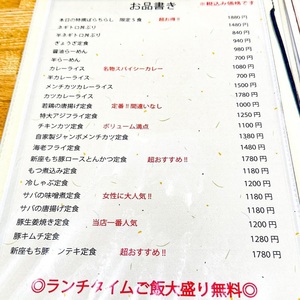 お品書き
※税込み価格です
本日の特撰ばらちらし 限定5食 超お得!! 1880円
ネギトロ丼ぶり 1480円
半ネギトロ丼ぶり 980円
ぎょうざ定食 980円
醤油らーめん 700円
半らーめん 400円
カレーライス 名物スパイシーカレー 780円
半カレーライス 480円
メンチカツカレーライス 1180円
カツカレーライス 1580円
若鶏の唐揚げ定食 定番!!間違いなし 1180円
特大アジフライ定食 1200円
チキンカツ定食 ボリューム満点 1100円
自家製ジャンボメンチカツ定食 1100円
海老フライ定食 1480円
新座もち豚ロースとんかつ定食 超おすすめ!! 1780円
もつ煮込み定食 1180円
冷しゃぶ定食 1200円
サバの味噌煮定食 女性に大人気!! 1180円
サバの唐揚げ定食 1180円
豚生姜焼き定食 当店一番人気 1200円
豚キムチ定食 1280円
新座もち豚トンテキ定食 超おすすめ!! 1780円
◎ランチタイムご飯大盛り無料◎